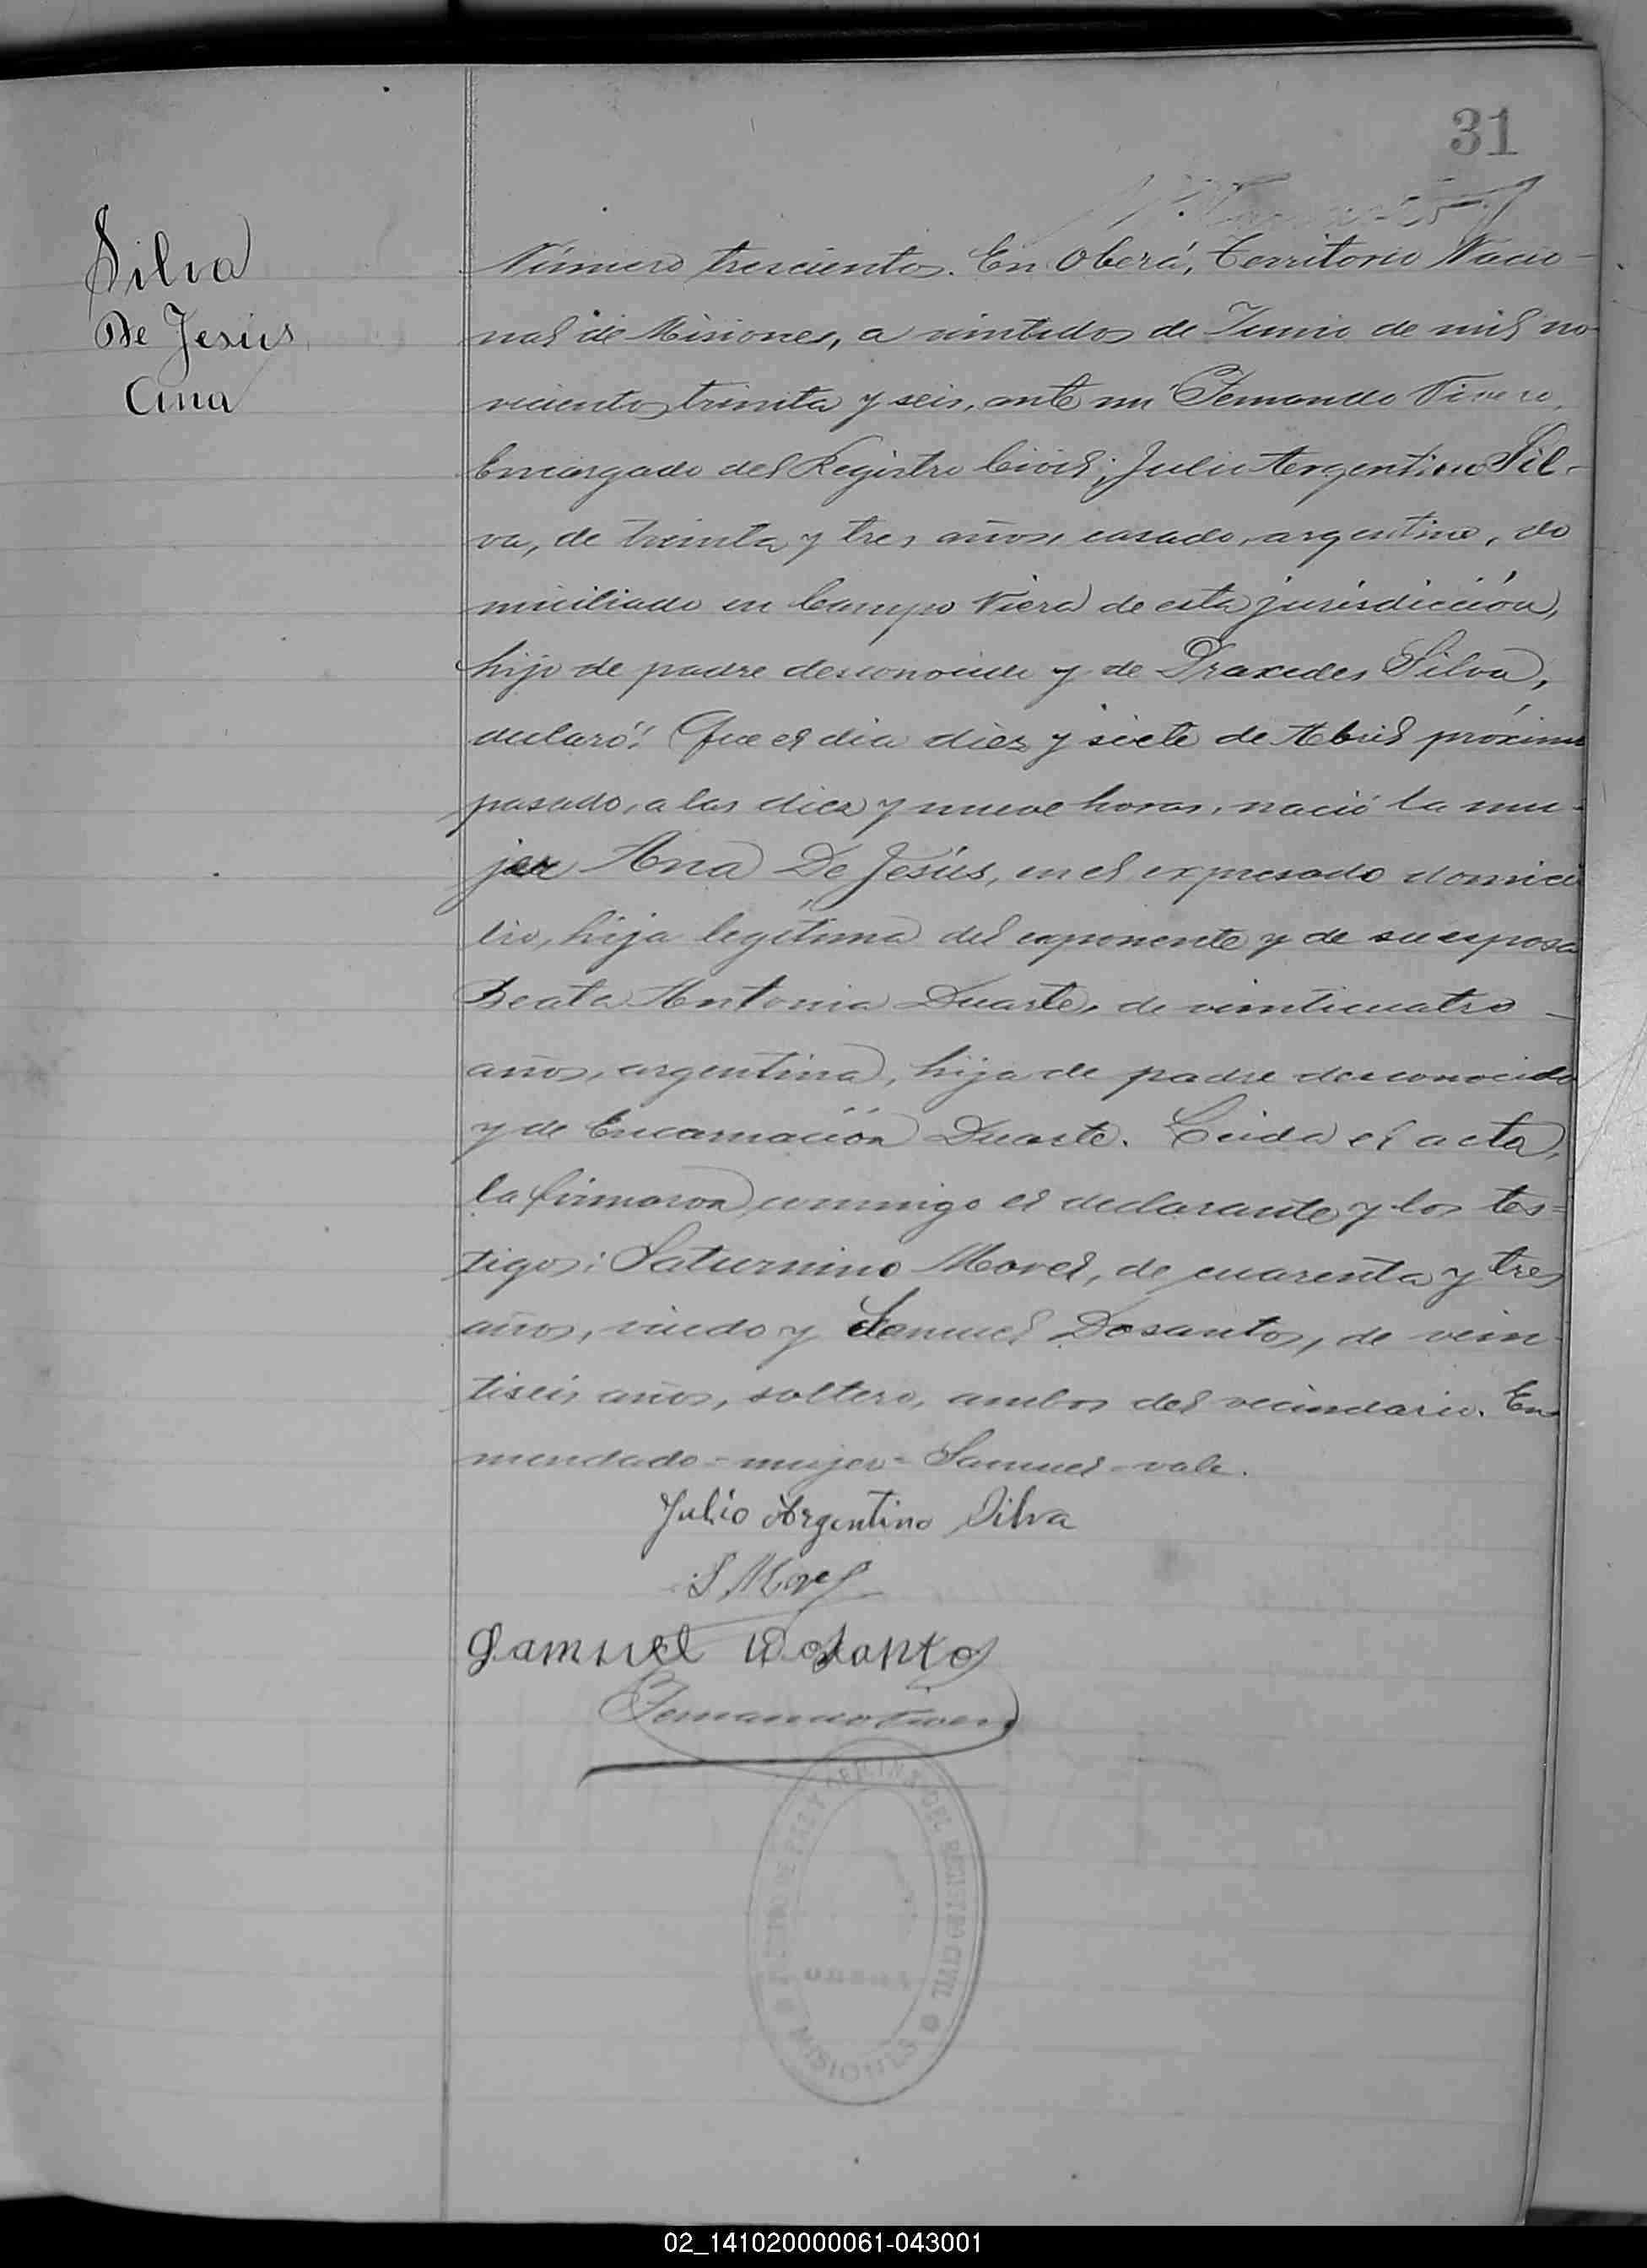 31
Silva
De Jesús
Ana
Número trescientos. En Oberá, Territorio Nacio-
nal de Misiones, a veintidos de Junio de mil no-
vecientos treinta y seis, ante mi Fernando Vivero,
Encargado del Registro Civil; Julio Argentino Sil-
va, de treinta y tres años, casado, argentino, do
miciliado en Campo Viera de esta jurisdicción,
hijo de padre desconocido y de Praxedes Silva,
declaró: Que el dia diez y siete de Abril próximo
pasado, a las diez y nueve horas, nació la mu-
jer Ana De Jesús, en el expresado domici
lio, hija legítima del exponente y de su esposa
Beata Antonia Duarte, de veinticuatro
años, argentina, hija de padre desconocido
y de Encarnación Duarte. Leida el acta,
la firmaron conmigo el declarante y los tes=
tigos: Saturnino Morel, de cuarenta y tres
años, viudo y Samuel Dosantos, de vein-
tiseis años, soltero, ambos del vecindario. En
mendado = mujer = Samuel = vale.
Julio Argentino Silva
S Morel
Samuel Dosantos
Fernando Vivero
DEL REGISTRO CIVIL
MISIONES
02_141020000061-043001